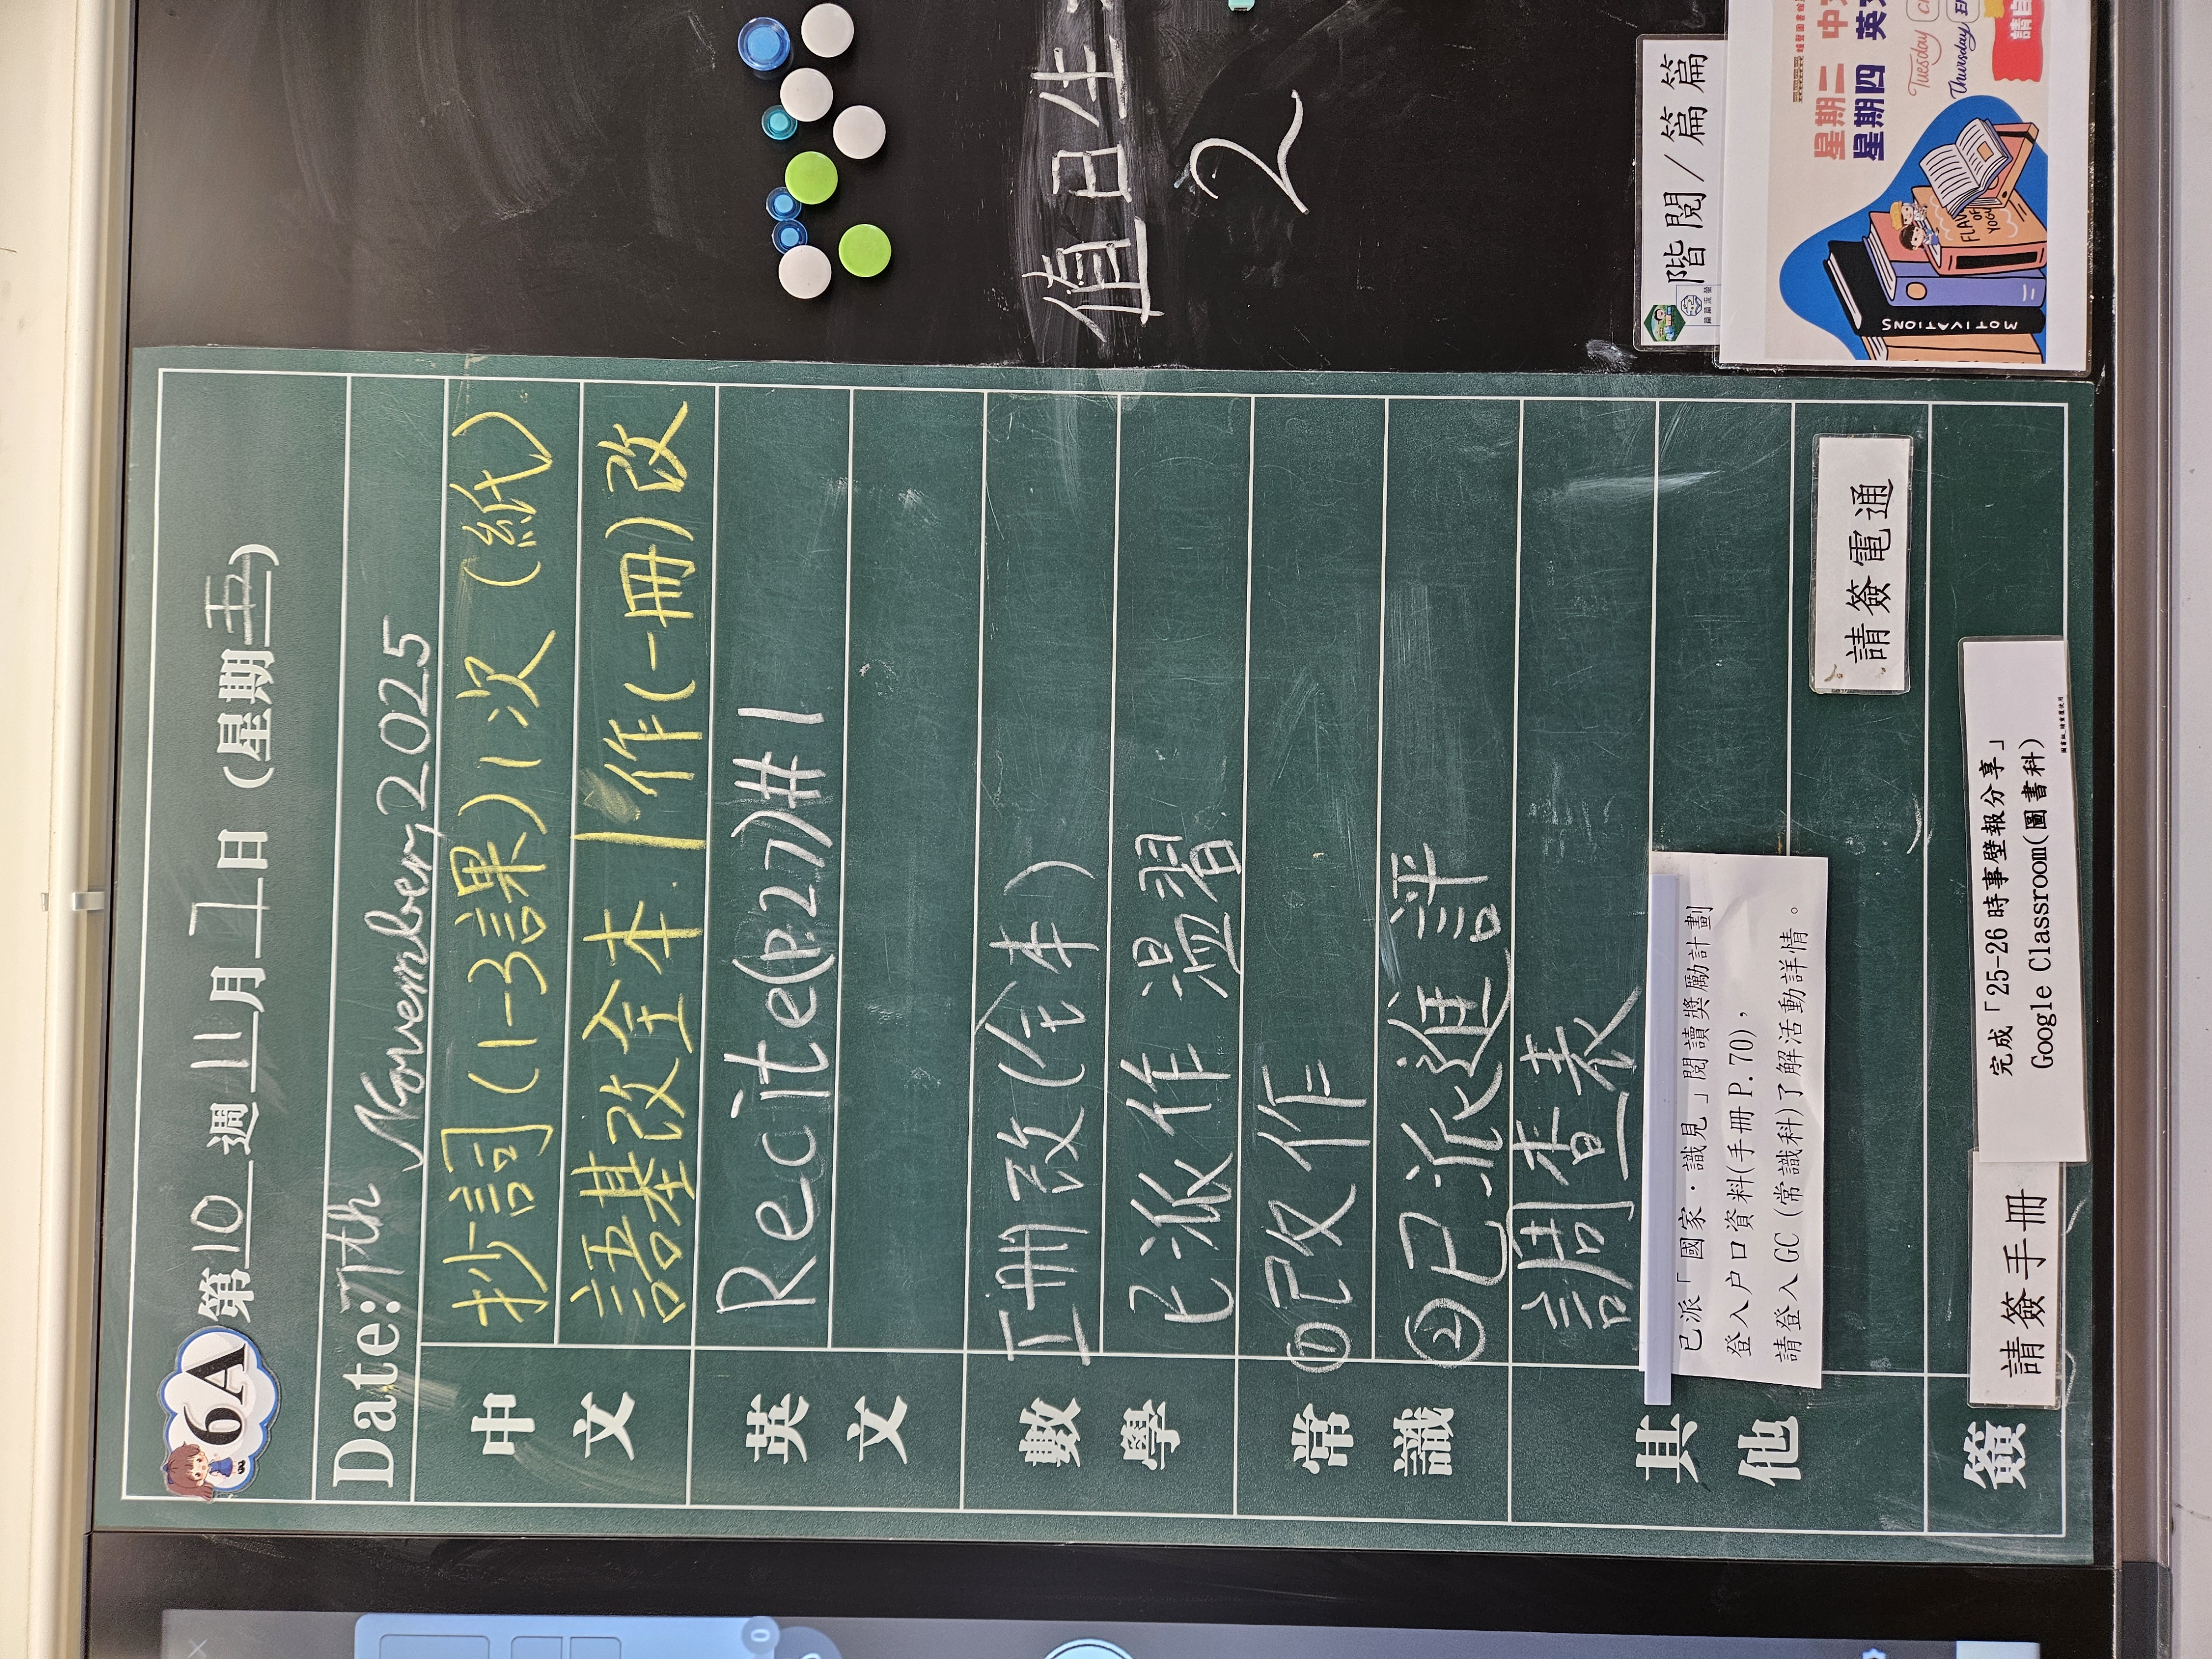 6A 第10週11月7日(星期五)
Date:7th November, 2025
中文
抄詞(1-3課)1次(紙)
語基改全本|作(一冊)改
英文
Recite(P.27)#1
數學
正冊改(全本)
已派作溫習
常識
①已改作
②已派進評
其他
調查表
已派「國家·識見」閱讀獎勵計劃
登入户口資料(手冊P.70),
請登入GC(常識科)了解活動詳情。
請簽電通
簽
請簽手冊
完成「25-26時事壁報分享」
Google Classroom(圖書科)
值日生
2
階閱/篇篇
星期二 中
星期四 英
Tuesday
Thursday
MOTIVATIONS